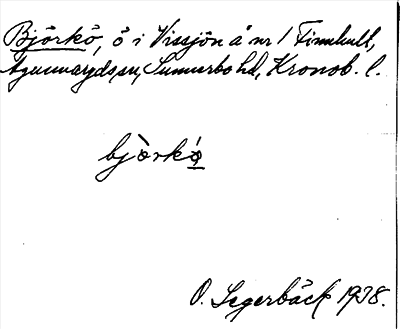 Björkö, ö i Vissjön å nr 1 Finnhult,
Agunnaryds sn, Sunnerbo hd, Kronob. l.
bjò̈rkǿ
O. Segerbäck 1938.